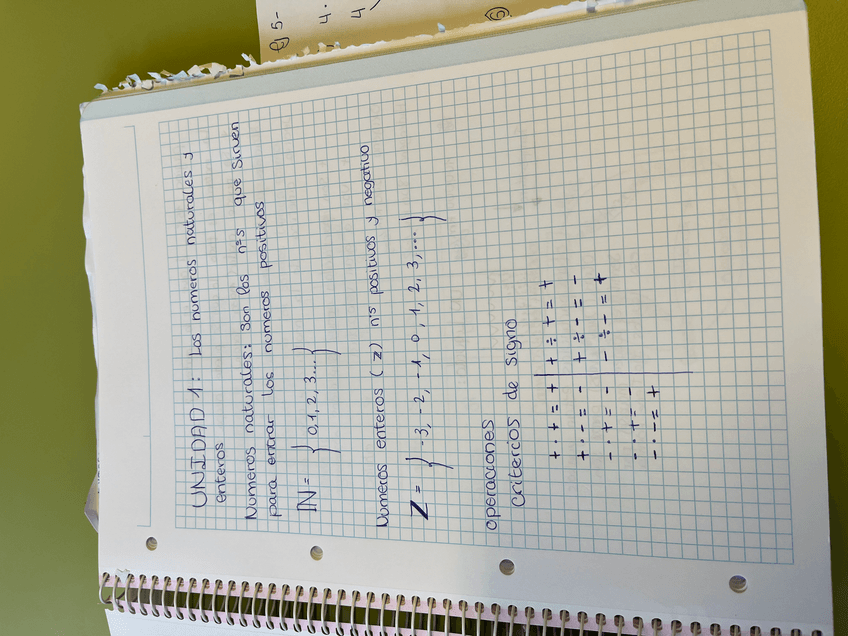 UNIDAD 1: Los numeros naturales y
enteros
Numeros naturales: Son los nºs que sirven
para los numeros positivos
ℕ = { 0,1,2,3...}
Numeros enteros (Z) nºs positivos y negativo
Z = { -3, -2, -1, 0, 1, 2, 3,...}
operaciones
Criterios de signo
+ · + = + + ÷ + = +
+ · - = - + ÷ - = -
- · + = - - ÷ - = +
- · + = -
- · - = +
5-
4.
4
5